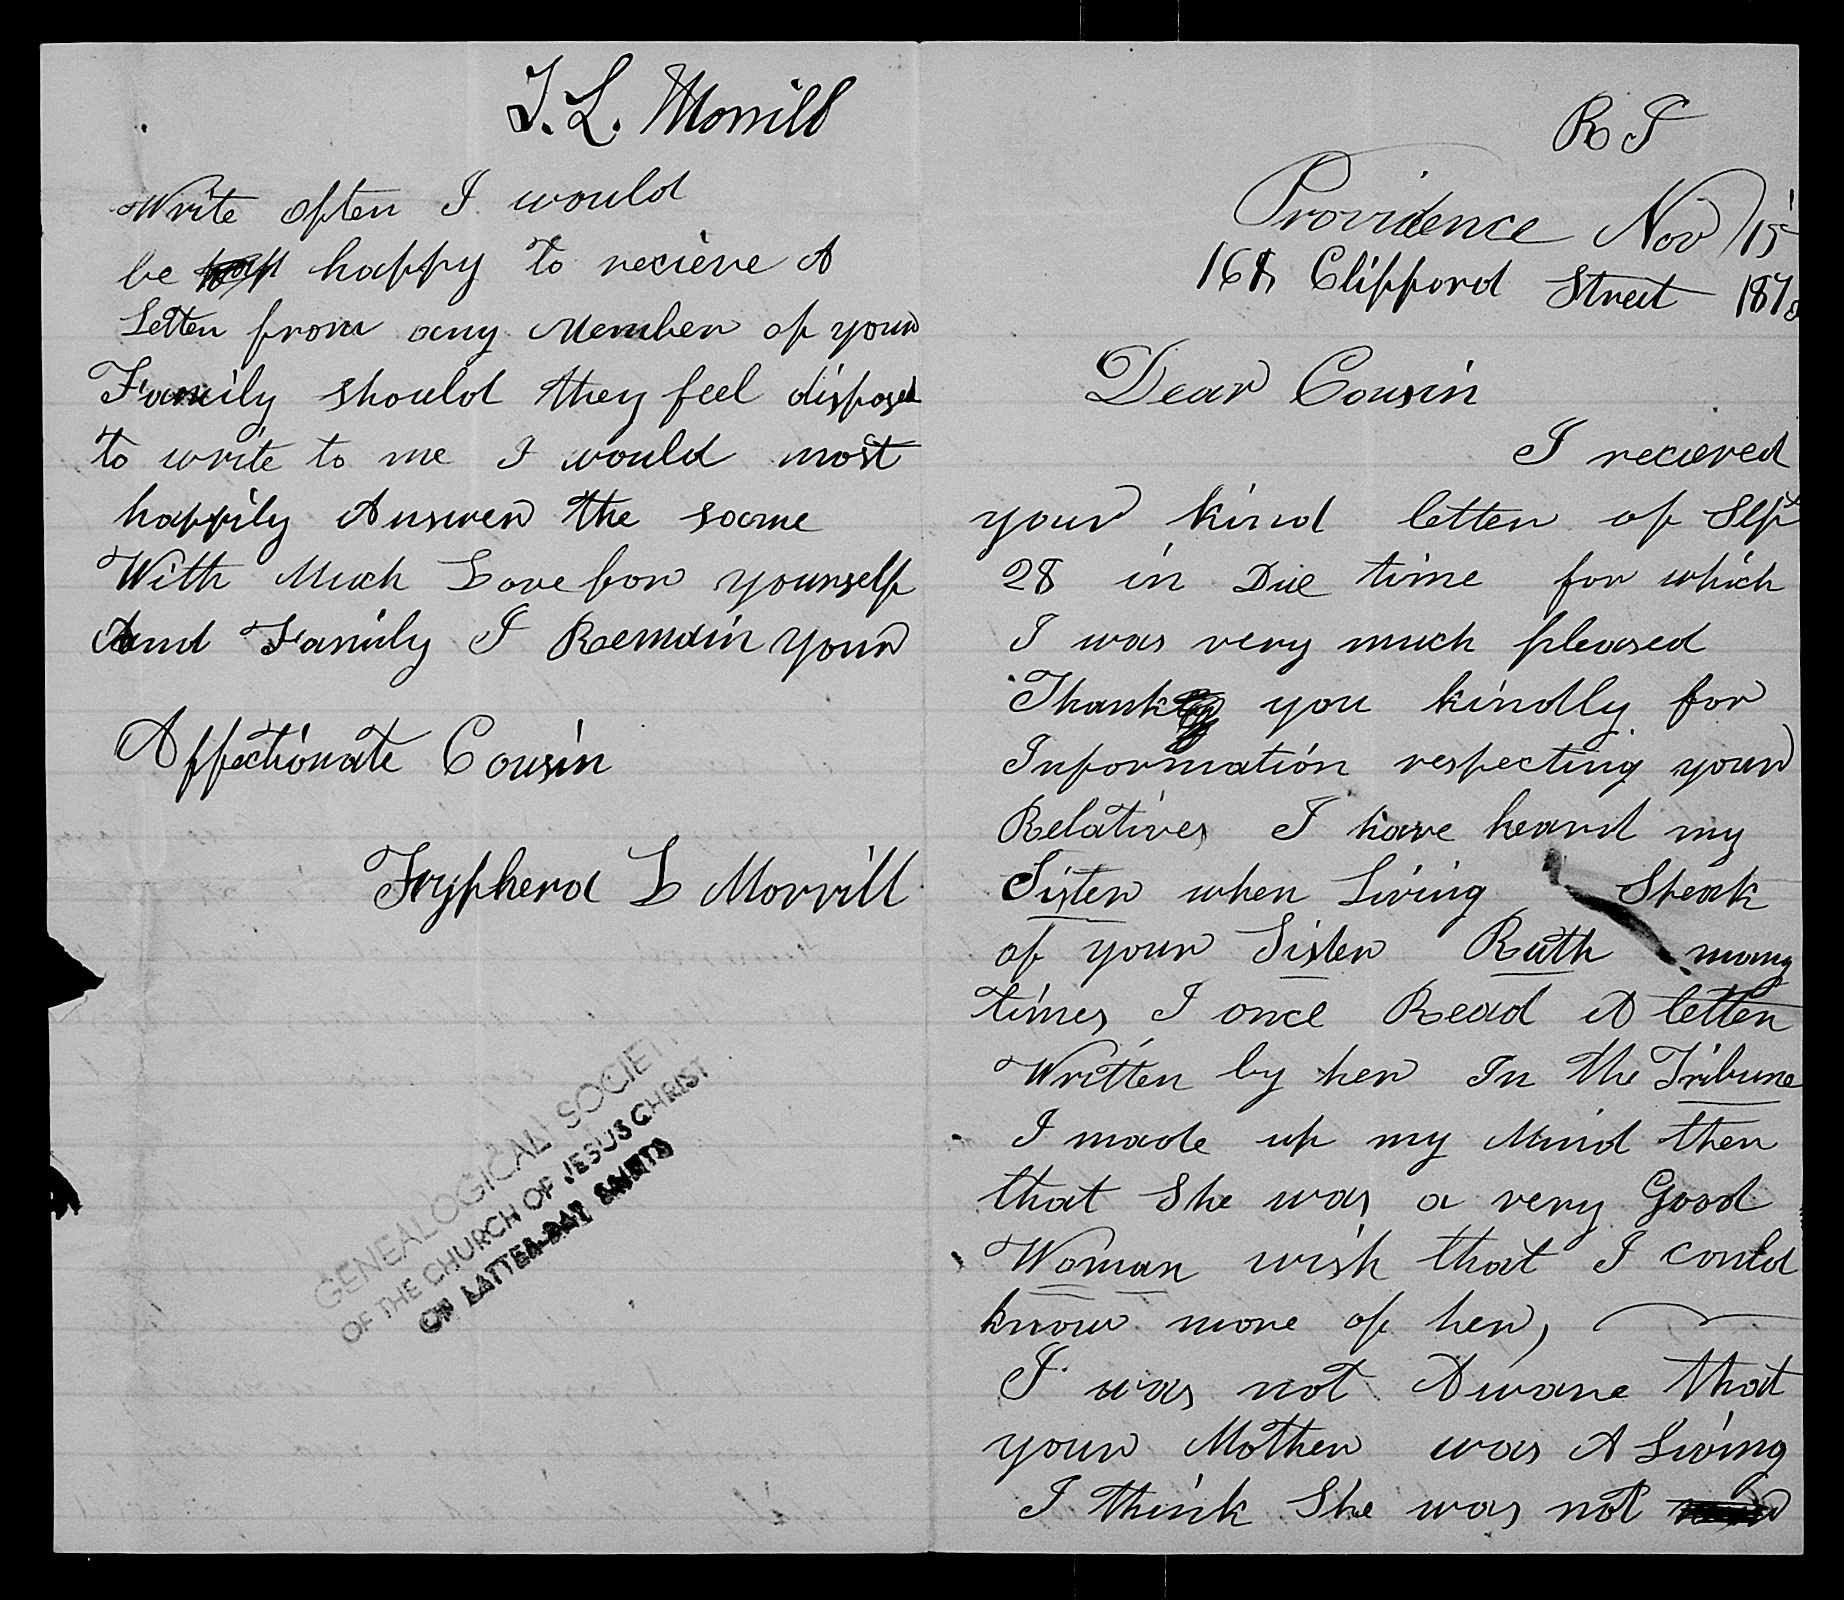 R I
Providence Nov 15
168 Clifford Street 187
Dear Cousin
I recieved
your kind letter of Sept
28 in Due time for which
I was very much pleased
Thank you kindly for
Information respecting your
Relatives I have heard my
Sister when Living Speak
of your Sister Ruth many
times, I once Read A letter
Written by her In the Tribune
I made up my Mind then
that She was a very Good
Woman wish that I could
know more of her,
I was not Aware that
your Mother was A Living
I think She was not
T. L. Morrill
Write often I would
be happy to recieve A
Letter from any Member of your
Family should they feel disposed
to write to me I would most
happily Answer the same
With Much Love for yourself
And Family I Remain your
Affectionate Cousin
Tryphena L Morrill
GENEALOGICAL SOCIETY
OF THE CHURCH OF JESUS CHRIST
OF LATTER-DAY SAINTS